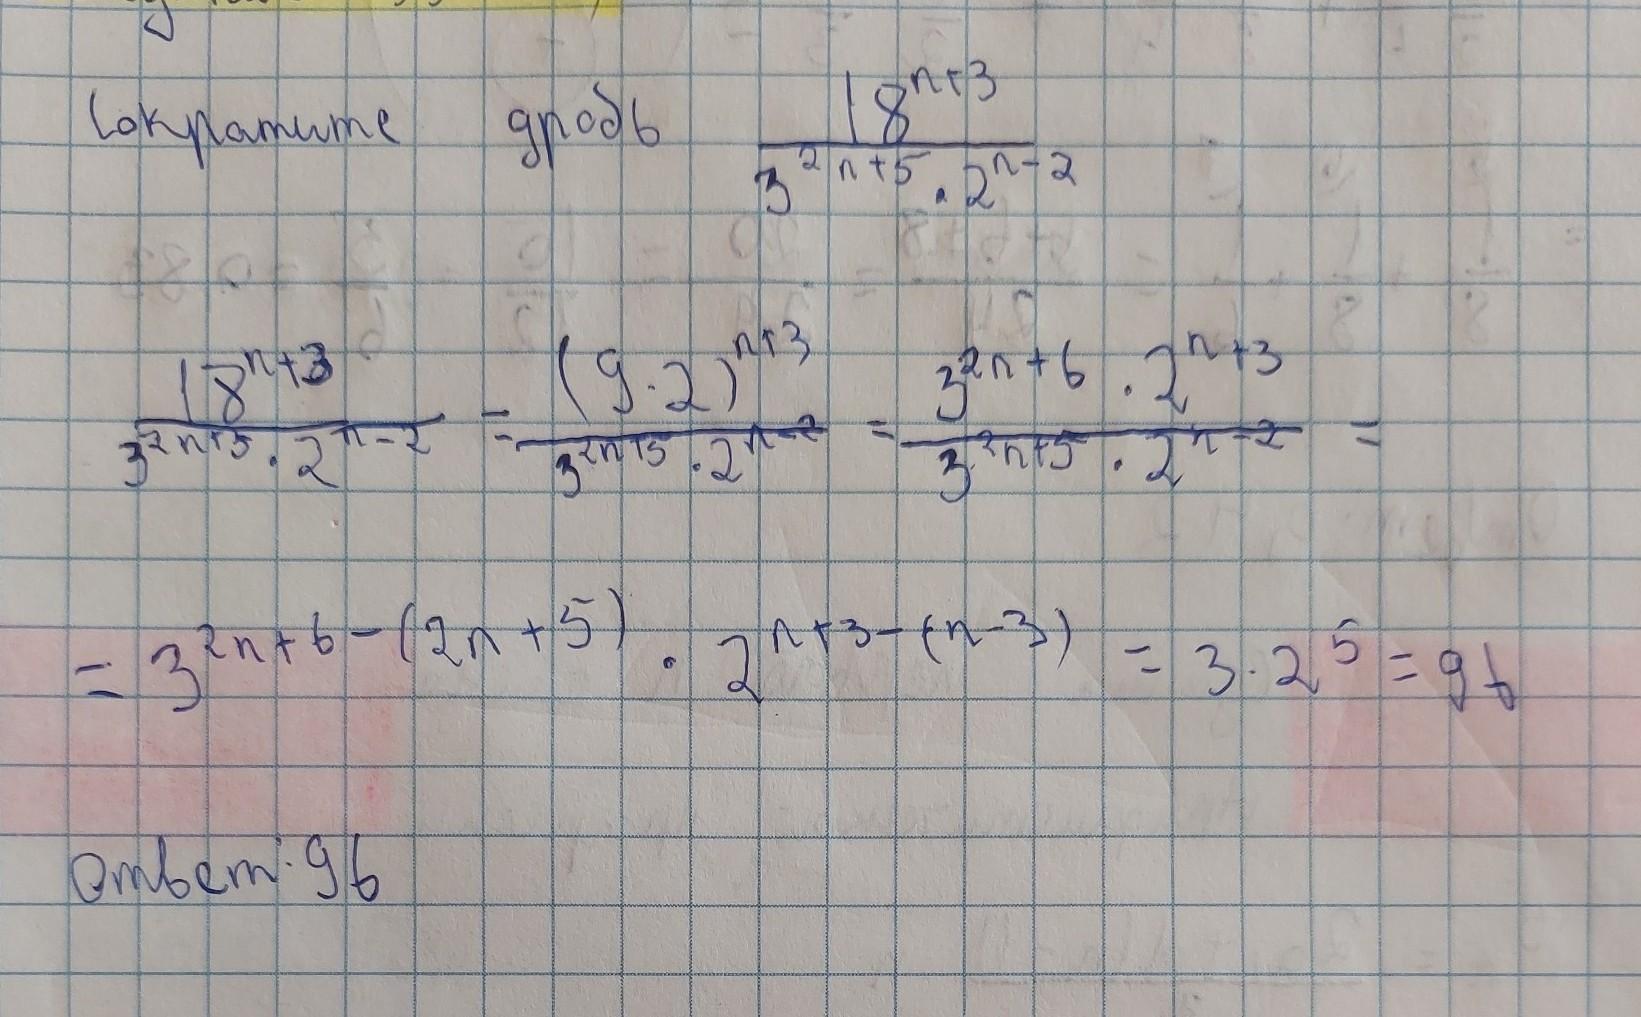 Сократите дробь 18^{n+3} / (3^{2n+5} · 2^{n-2})
18^{n+3} / (3^{2n+5} · 2^{n-2}) = (9·2)^{n+3} / (3^{2n+5} · 2^{n-2}) = (3^{2n+6} · 2^{n+3}) / (3^{2n+5} · 2^{n-2}) =
= 3^{2n+6-(2n+5)} · 2^{n+3-(n-3)} = 3·2^5 = 96
Ответ: 96